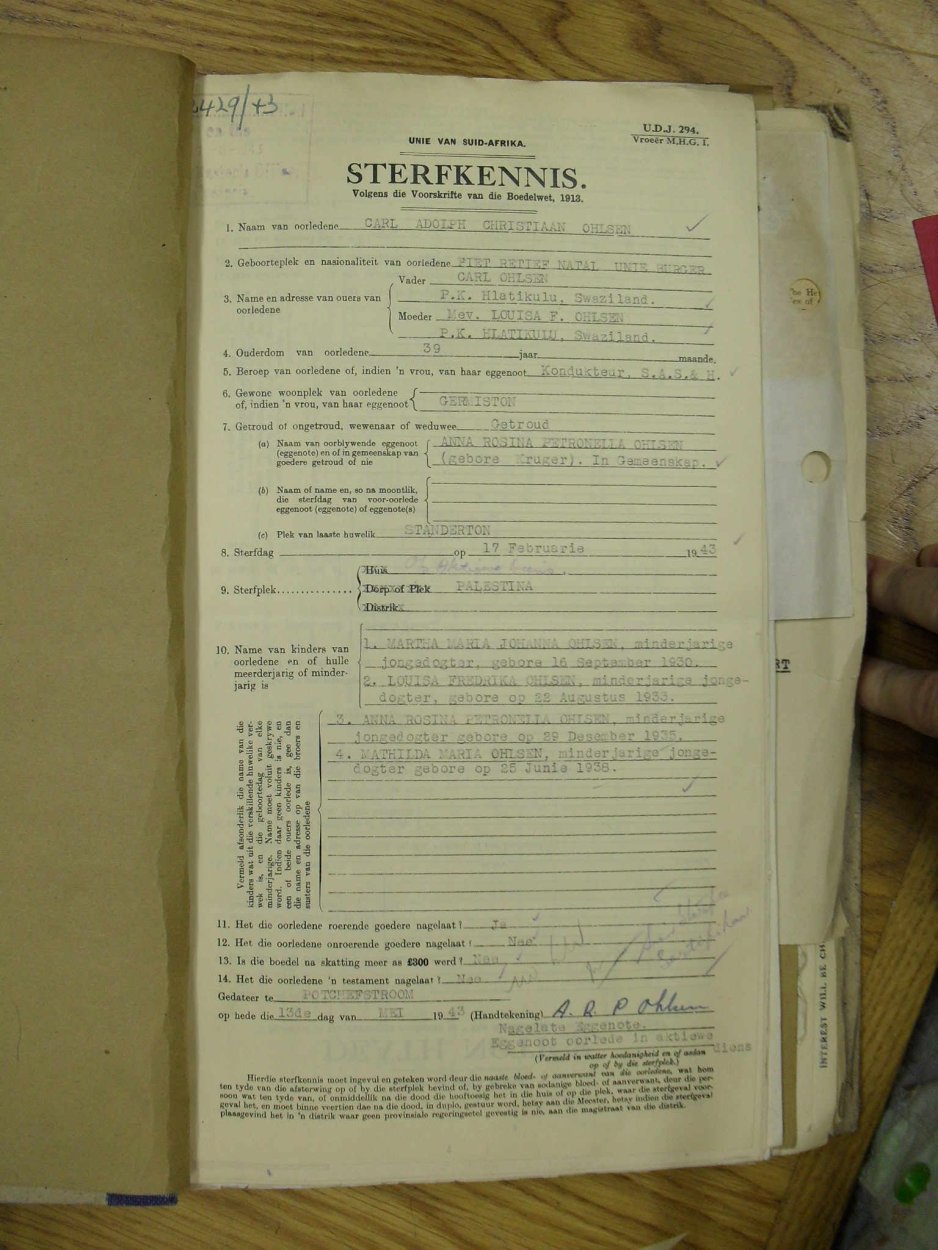 429/43
U.D.J. 294.
Vroeër M.H.G. I.
UNIE VAN SUID-AFRIKA.
STERFKENNIS.
Volgens die Voorskrifte van die Boedelwet, 1913.
1. Naam van oorledene CARL ADOLPH CHRISTIAAN OHLSEN
2. Geboorteplek en nasionaliteit van oorledene PIET RETIEF NATAL UNIE BURGER
3. Name en adresse van ouers van oorledene
Vader CARL OHLSEN
P.K. Hlatikulu, Swaziland.
Moeder Mev. LOUISA F. OHLSEN
P.K. HLATIKULU, Swaziland.
4. Ouderdom van oorledene 39 jaar maande.
5. Beroep van oorledene of, indien 'n vrou, van haar eggenoot Kondukteur, S.A.S.& H.
6. Gewone woonplek van oorledene
of, indien 'n vrou, van haar eggenoot GERMISTON
7. Getroud of ongetroud, wewenaar of weduwee Getroud
(a) Naam van oorblywende eggenoot
(eggenote) en of in gemeenskap van
goedere getroud of nie
ANNA ROSINA PETRONELLA OHLSEN
(gebore Kruger). In Gemeenskap.
(b) Naam of name en, so na moontlik,
die sterfdag van voor-oorlede
eggenoot (eggenote) of eggenote(s)
(c) Plek van laaste huwelik STANDERTON
8. Sterfdag op 17 Februarie 1943
9. Sterfplek
Huis
Dorp of Plek PALESTINA
Distrik
10. Name van kinders van
oorledene en of hulle
meerderjarig of minder-
jarig is
1. MARTHA MARIA JOHANNA OHLSEN, minderjarige
jongedogter, gebore 16 September 1930.
2. LOUISA FREDRIKA OHLSEN, minderjarige jonge-
dogter, gebore op 22 Augustus 1933.
Vermeld afsonderlik die name van die
kinders wat uit die verskillende huwelike ver-
wek is, en die geboortedag van elke
minderjarige. Name moet voluit geskrywe
word. Indien daar geen kinders is nie, en
een of beide ouers oorlede is, gee dan
die name en adresse op van die broers en
susters van die oorledene
3. ANNA ROSINA PETRONELLA OHLSEN, minderjarige
jongedogter gebore op 29 Desember 1935.
4. MATHILDA MARIA OHLSEN, minderjarige jonge-
dogter gebore op 25 Junie 1938.
11. Het die oorledene roerende goedere nagelaat? Ja
12. Het die oorledene onroerende goedere nagelaat? Nee
13. Is die boedel na skatting meer as £300 werd? Nee
14. Het die oorledene 'n testament nagelaat? Nee
Gedateer te POTCHEFSTROOM
op hede die 13de dag van MEI 1943 (Handtekening) A. R. P Ohlsen
Nagelate Eggenote.
Eggenoot oorlede in aktiewe diens
(Vermeld in watter hoedanigheid en of aldan
op of by die sterfplek.)
Hierdie sterfkennis moet ingevul en geteken word deur die naaste bloed- of aanverwant van die oorledene, wat hom
ten tyde van die afsterwing op of by die sterfplek bevind of, by gebreke van sodanige bloed- of aanverwant, deur die per-
soon wat ten tyde van, of onmiddellik na die dood die hooftoesig het in die huis of op die plek, waar die sterfgeval voor-
geval het, en moet binne veertien dae na die dood, in duplo, gestuur word, hetsy aan die Meester, hetsy indien die sterfgeval
plaasgevind het in 'n distrik waar geen provinsiale regeringsetel gevestig is nie, aan die magistraat van die distrik.
INTEREST WILL BE CH